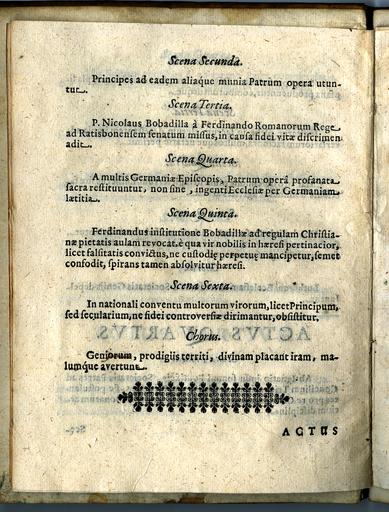 Scena Secunda.
Principes ad eadem aliaque munia Patrum opera utun-
tur.
Scena Tertia.
P. Nicolaus Bobadilla à Ferdinando Romanorum Rege
ad Ratisbonensem senatum missus, in causa fidei vitæ discrimen
adit.
Scena Quarta.
A multis Germaniæ Episcopis, Patrum operâ profanata
sacra restituuntur, non sine, ingenti Ecclesiæ per Germaniam
lætitia.
Scena Quinta.
Ferdinandus institutione Bobadillæ ad regulam Christia-
næ pietatis aulam revocat. è qua vir nobilis in hæresi pertinacior,
licet falsitatis convictus, ne custodiæ perpetuæ mancipetur, semet
confodit, spirans tamen absolvitur hæresi.
Scena Sexta.
In nationali conventu multorum virorum, licet Principum,
sed sęcularium, ne fidei controversiæ dirimantur, obsistitur.
Chorus.
Geniorum, prodigiis territi, divinam placant iram, ma-
lumque avertunt.
ACTUS